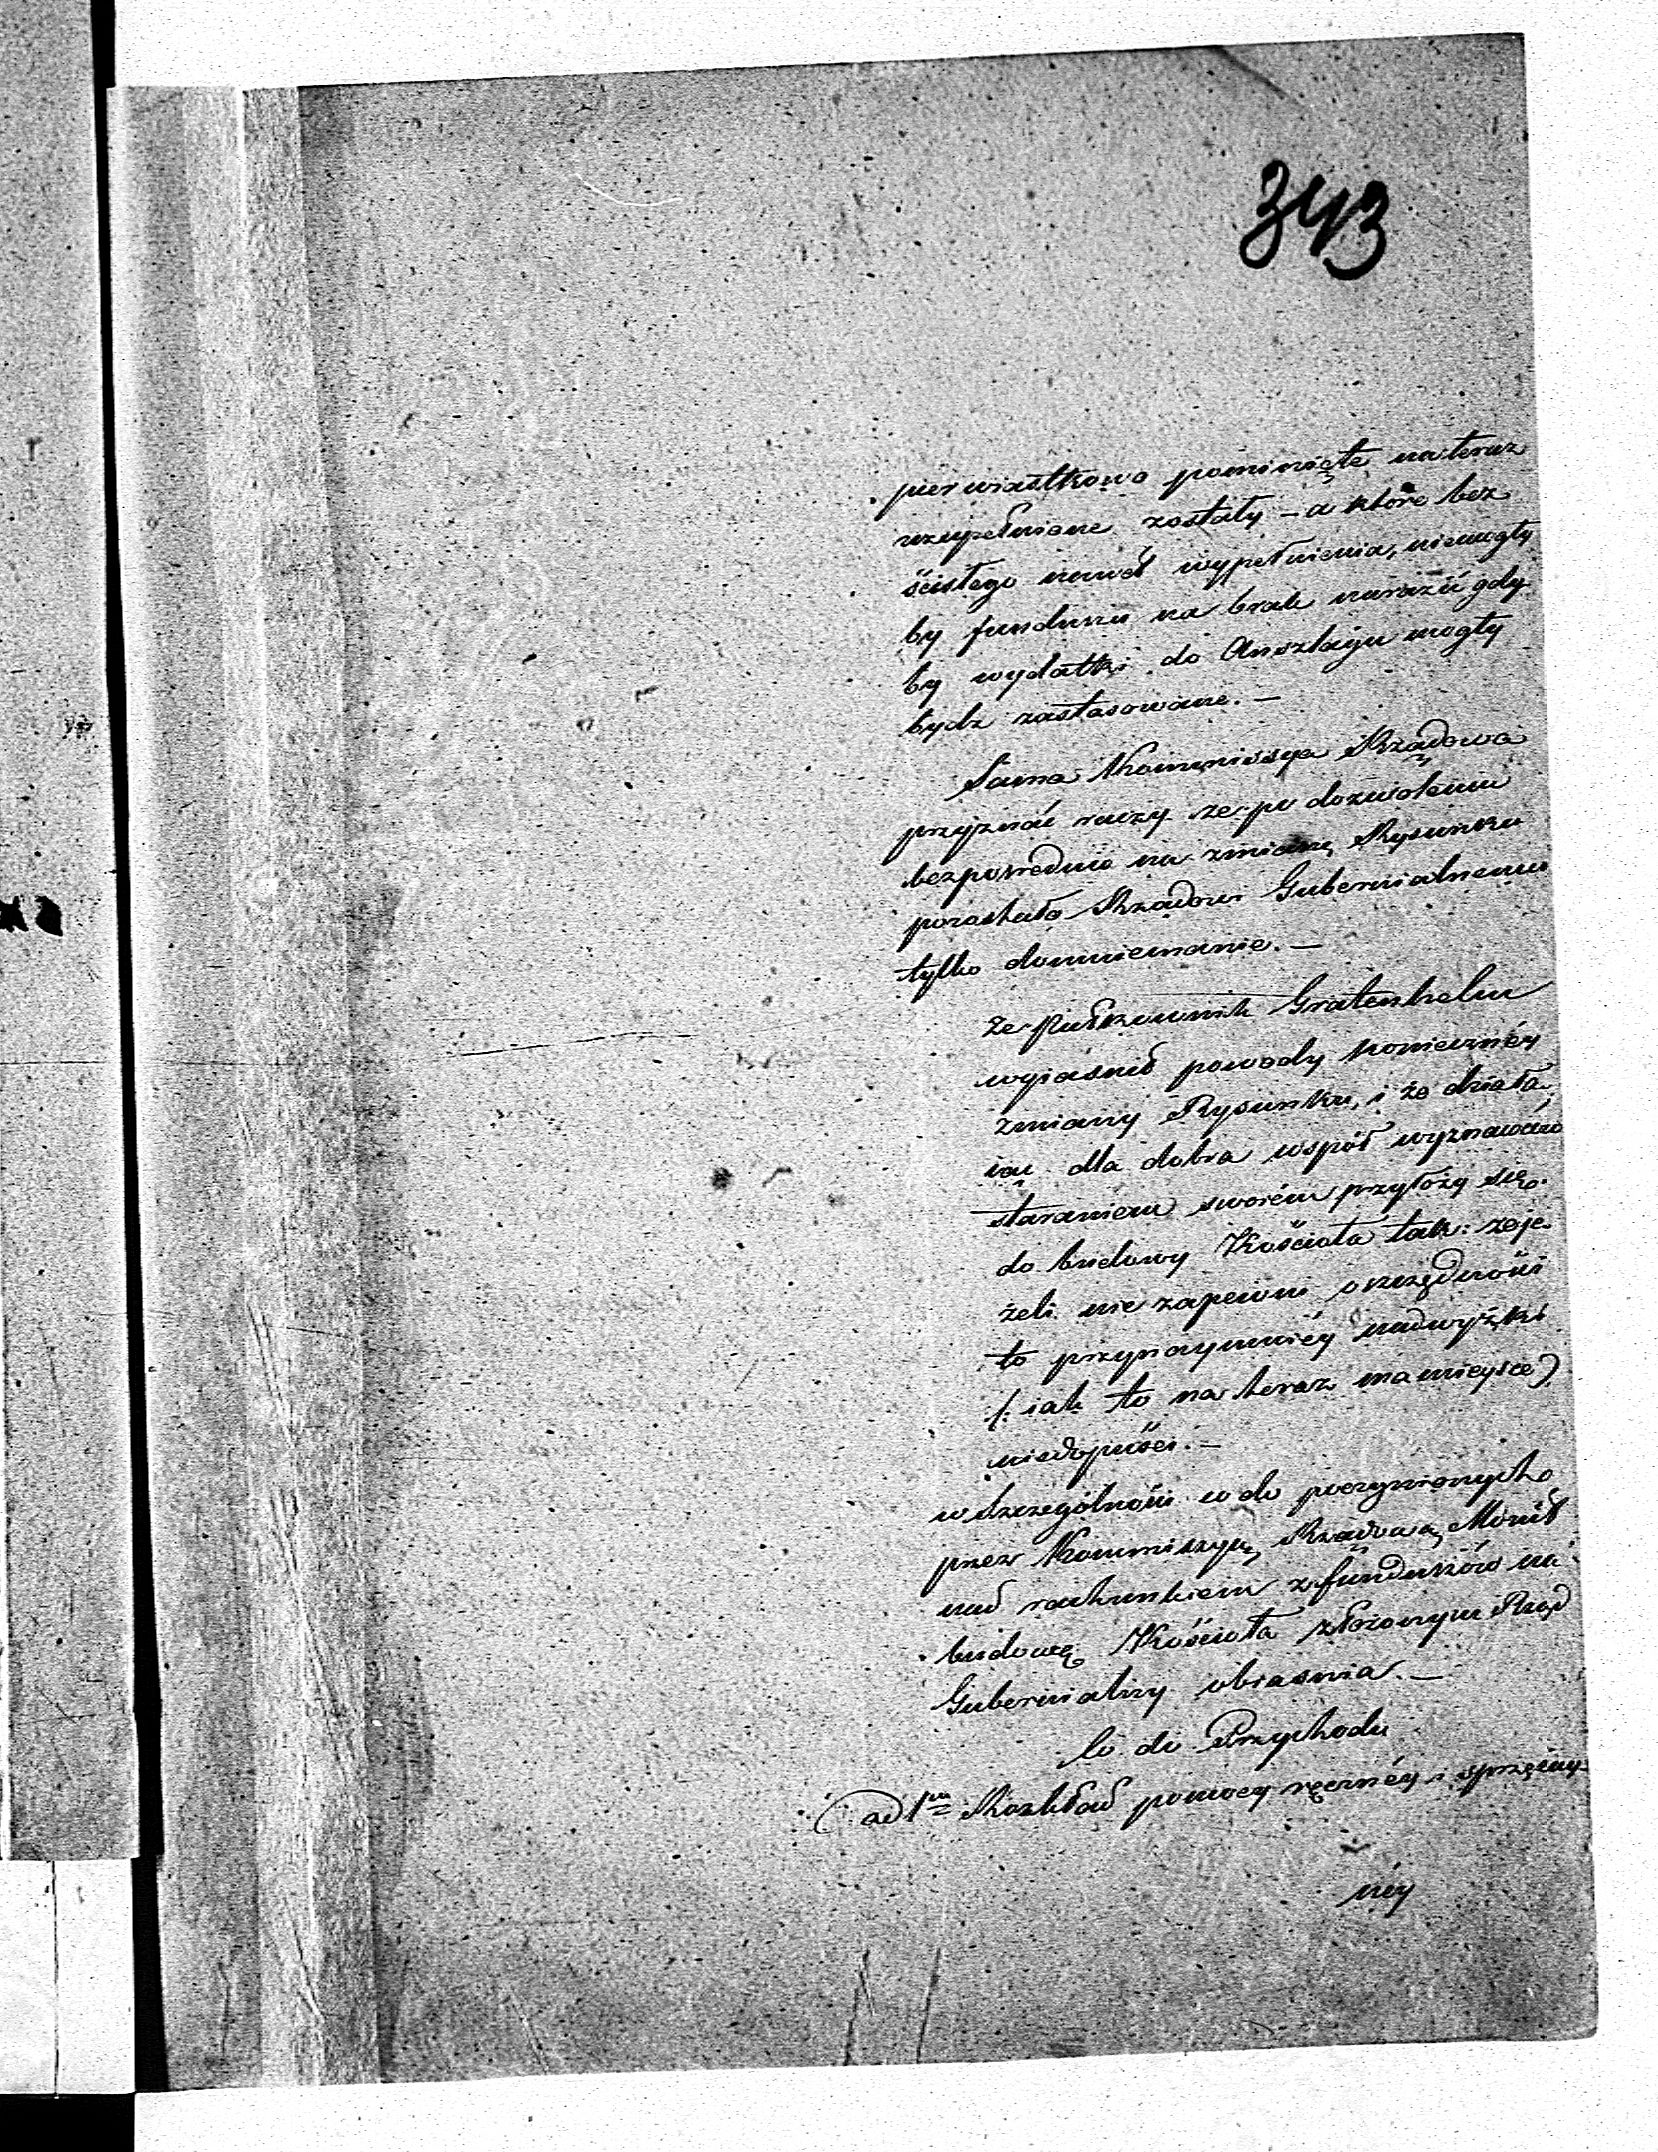 343
pierwiastkowo pominięte na teraz
uzupełnione zostały – a które bez
ścisłego nawet wypełnienia, niemogły
by funduszu na brak narazić gdy
by wydatki do Anszlagu mogły
bydz zastosowane. –
Sama Kommissya Rządowa
przyznać raczy że po dozwoleniu
bezpośrednio na zmianę Rysunku
pozostało Rządowi Gubernialnemu
tylko domniemanie. –
że Pułkownik Gratenhelm
wyiaśnił powody konieczney
zmiany Rysunku, i że działa
iąc dla dobra współ wyznawców
staraniem swoiém przyłoży się
do budowy Kościoła tak: że je
żeli nie zapewni oszczędności
to przynaymniéy nadwyżki
(: iak to na teraz ma mieysce)
niedopuści. –
w szczególności co do poczynionych
przez Kommissyą Rządową Monit
nad rachunkiem z funduszów na
budowę Kościoła złożonym Rząd
Gubernialny obiasnia. –
Co do Przychodu
ad 1m Rozkład pomocy ręcznéy i sprzęźay
néy